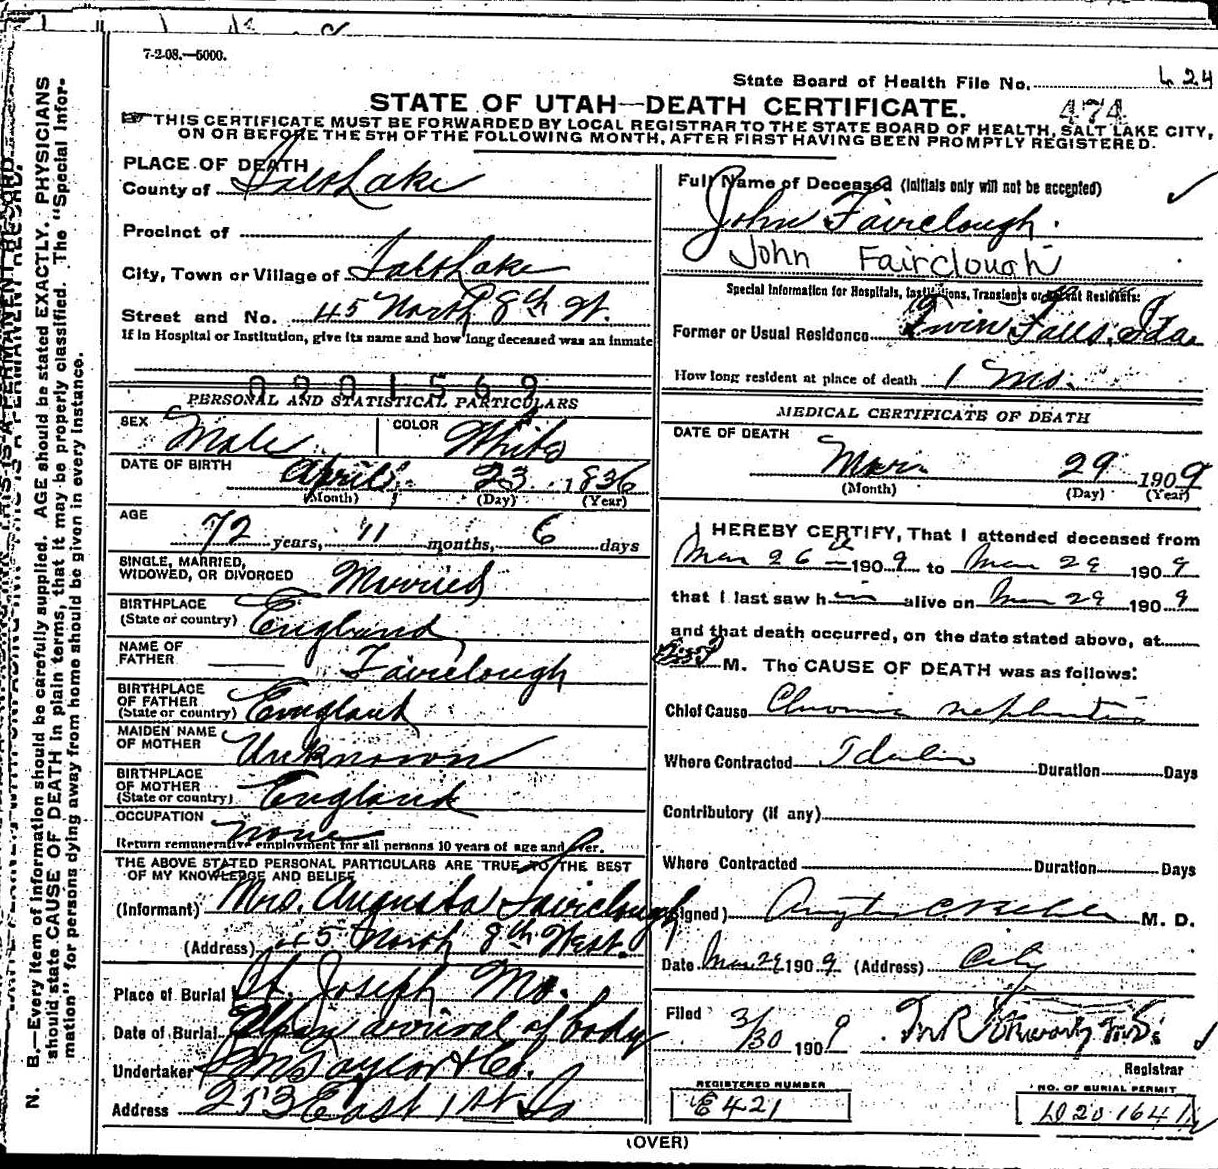 7-2-08.—5000.
State Board of Health File No. L 24
STATE OF UTAH—DEATH CERTIFICATE. 474
THIS CERTIFICATE MUST BE FORWARDED BY LOCAL REGISTRAR TO THE STATE BOARD OF HEALTH, SALT LAKE CITY,
ON OR BEFORE THE 5TH OF THE FOLLOWING MONTH, AFTER FIRST HAVING BEEN PROMPTLY REGISTERED.
N. B.—Every item of information should be carefully supplied. AGE should be stated EXACTLY. PHYSICIANS
should state CAUSE OF DEATH in plain terms, that it may be properly classified. The "Special Infor-
mation" for persons dying away from home should be given in every instance.
PLACE OF DEATH
County of Salt Lake
Precinct of
City, Town or Village of Salt Lake
Street and No. 45 North 8th W.
If in Hospital or Institution, give its name and how long deceased was an inmate
0201569
PERSONAL AND STATISTICAL PARTICULARS
SEX Male COLOR White
DATE OF BIRTH April 23 1836
(Month) (Day) (Year)
AGE
72 years, 11 months, 6 days
SINGLE, MARRIED,
WIDOWED, OR DIVORCED Married
BIRTHPLACE
(State or country) England
NAME OF
FATHER Fairclough
BIRTHPLACE
OF FATHER
(State or country) England
MAIDEN NAME
OF MOTHER Unknown
BIRTHPLACE
OF MOTHER
(State or country) England
OCCUPATION none
Return remunerative employment for all persons 10 years of age and over.
THE ABOVE STATED PERSONAL PARTICULARS ARE TRUE TO THE BEST
OF MY KNOWLEDGE AND BELIEF
(Informant) Mrs. Augusta Fairclough
(Address) 45 North 8th West.
Place of Burial St. Joseph Mo.
Date of Burial arrival of body
Undertaker Taylor & Co.
Address 253 East 1st So
Full Name of Deceased (Initials only will not be accepted)
John Fairclough.
John Fairclough
Special Information for Hospitals, Institutions, Transients or Recent Residents:
Former or Usual Residence Twin Falls, Ida
How long resident at place of death 1 Mo.
MEDICAL CERTIFICATE OF DEATH
DATE OF DEATH
Mar. 29 1909
(Month) (Day) (Year)
I HEREBY CERTIFY, That I attended deceased from
Mar 26th 1909 to Mar 29 1909
that I last saw him alive on Mar 29 1909
and that death occurred, on the date stated above, at
M. The CAUSE OF DEATH was as follows:
Chief Cause Chronic nephritis
Where Contracted Idaho Duration Days
Contributory (if any)
Where Contracted Duration Days
(Signed) M. D.
Date Mar 29 1909 (Address) City
Filed 3/30 1909
Registrar
REGISTERED NUMBER
E421
NO. OF BURIAL PERMIT
(OVER)